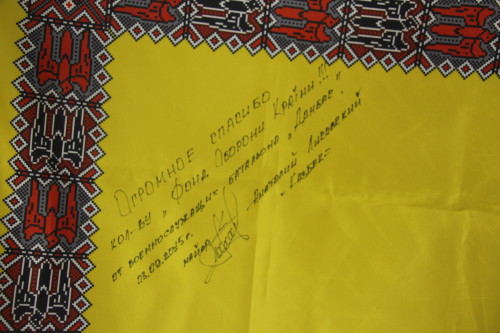 Огромное спасибо
кол-ву "Фонд Оборони Країни!!!
от военнослужащих батальона "Донбас".
03.09.2015г.
майор Анатолий